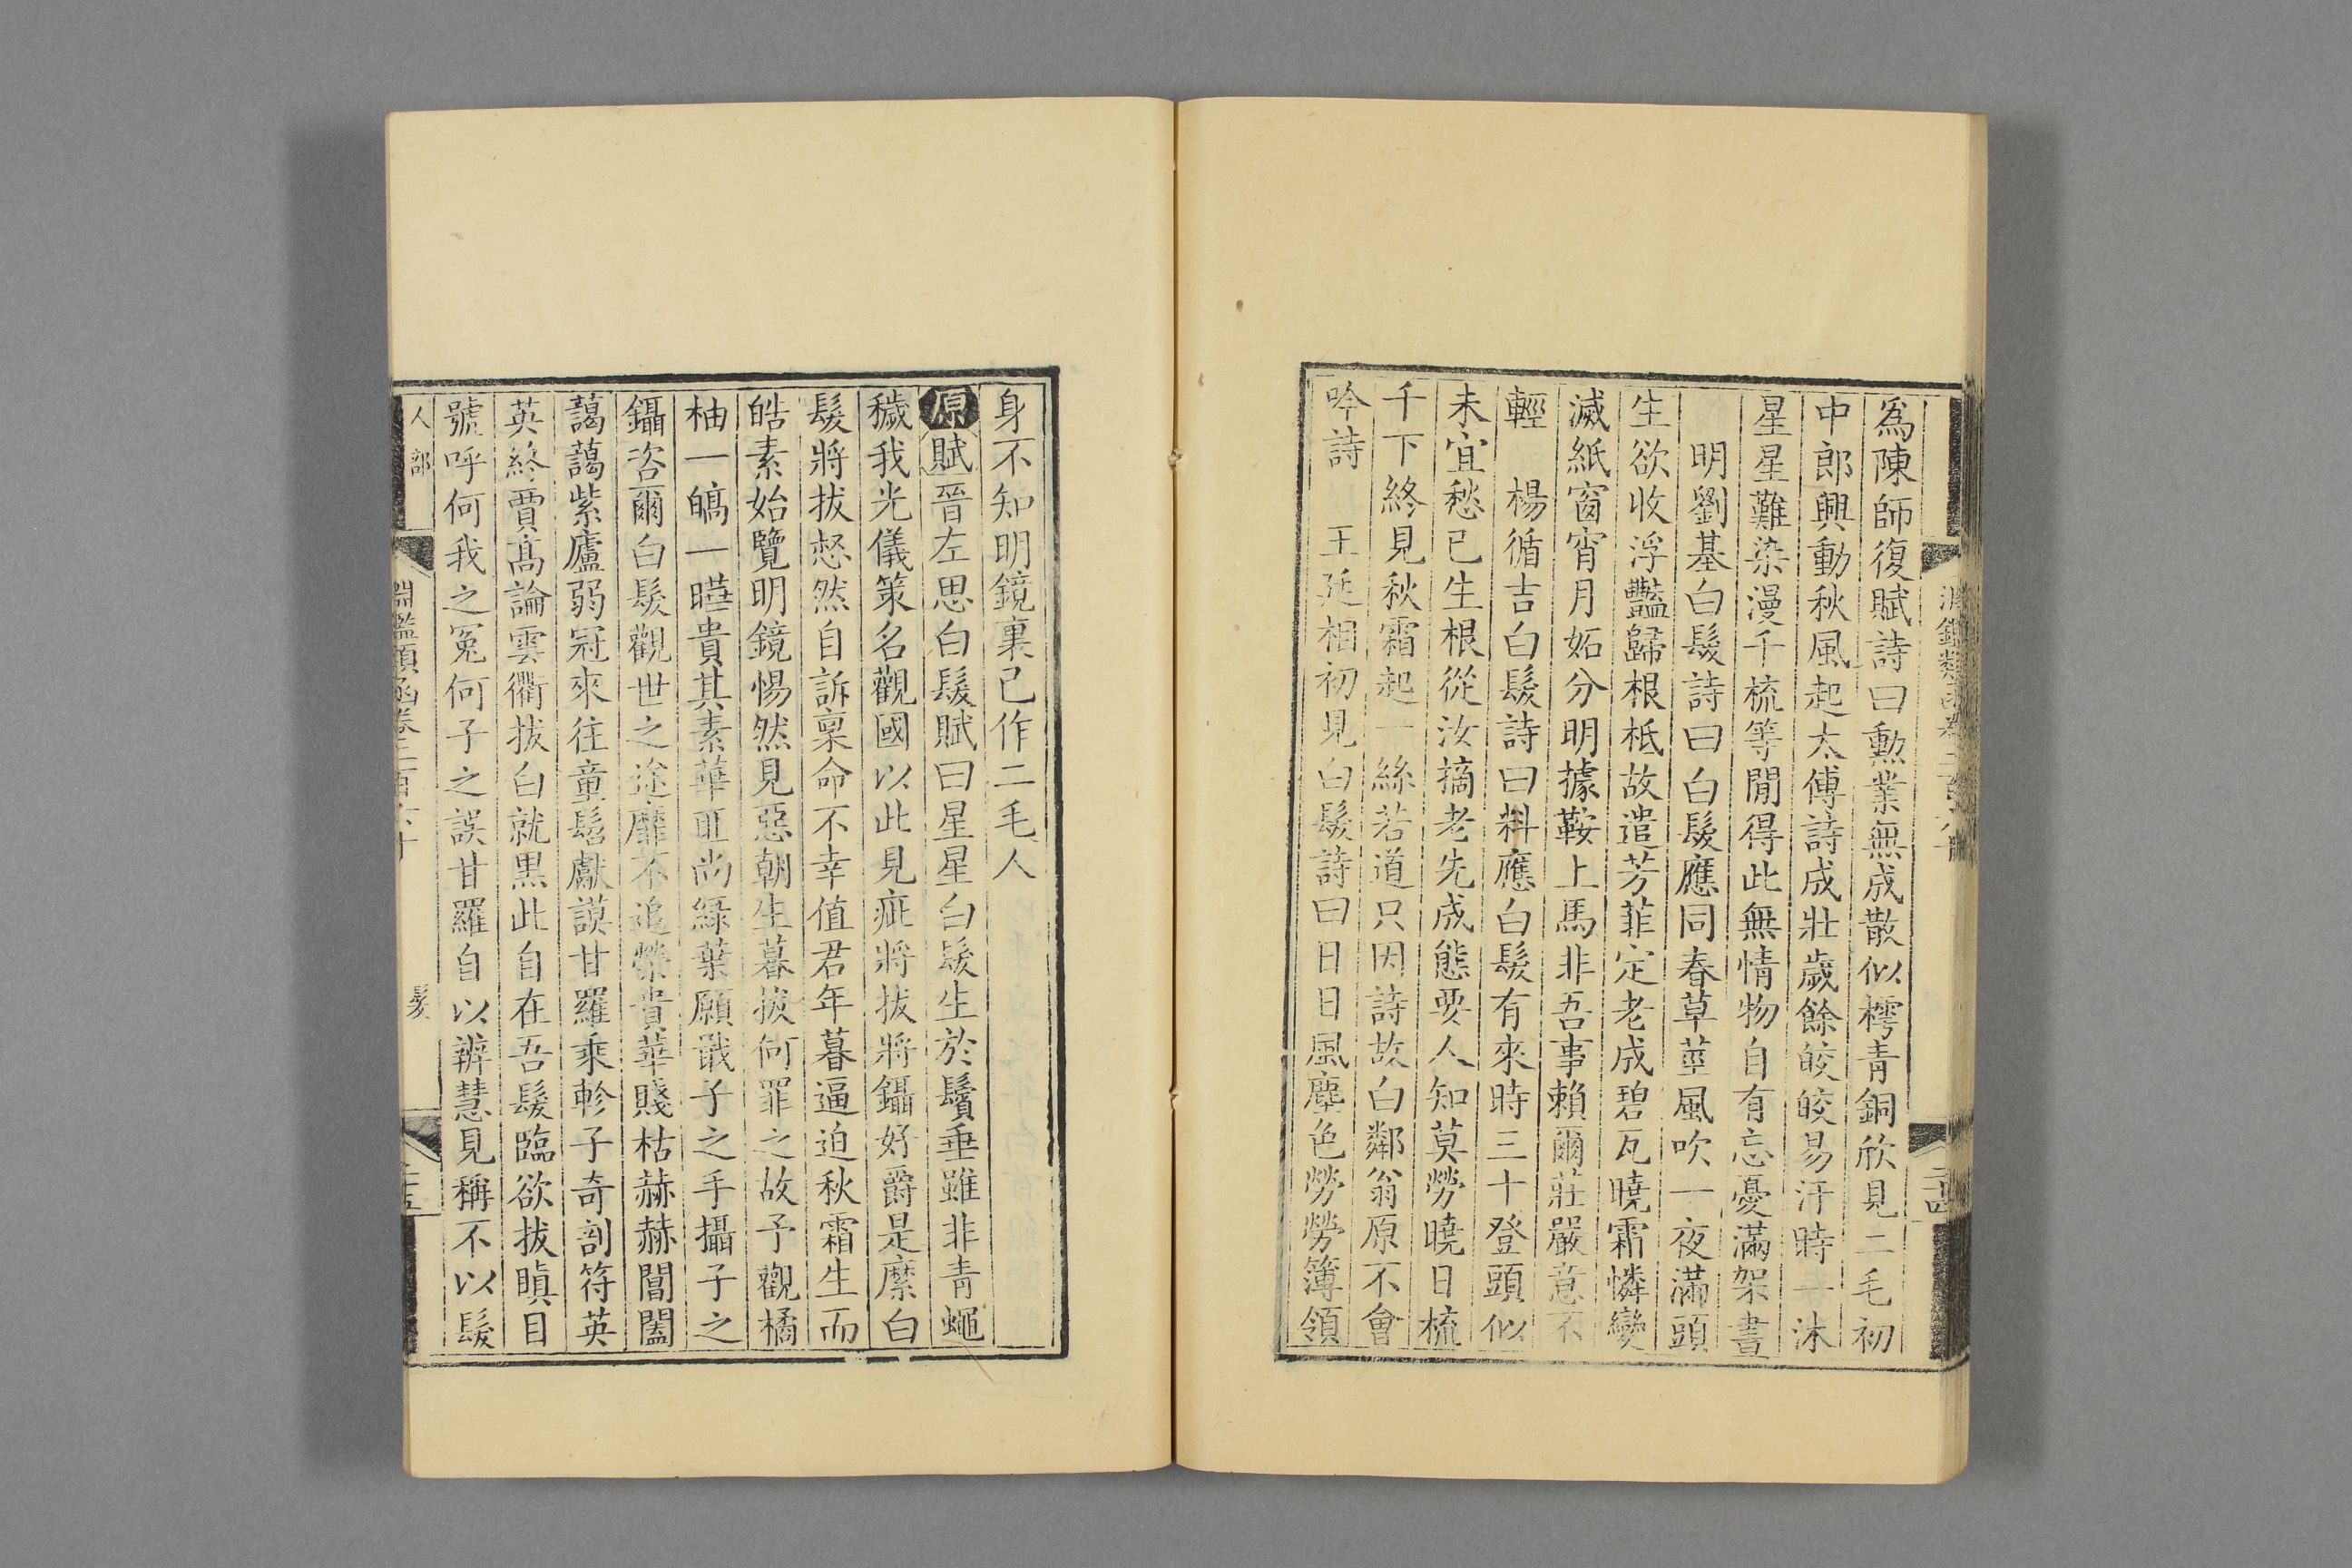 爲陳師復賦詩曰勲業無成散似樗青銅欣見二毛初
中郎興動秋風起太傅詩成壯歲餘皎皎易汙時一沐
星星難染漫千梳等閒得此無情物自有忘憂滿架書
明劉基白髮詩曰白髮應同春草莖風吹一夜滿頭
生欲收浮豔歸根柢故遣芳菲定老成碧瓦曉霜憐變
滅紙窗宵月妬分明據鞍上馬非吾事賴爾莊嚴意不
輕 楊循吉白髮詩曰料應白髮有來時三十登頭似
未宜愁已生根從汝摘老先成態要人知莫勞曉日梳
千下終見秋霜起一絲若道只因詩故白鄰翁原不會
吟詩 王廷相初見白髮詩曰日日風塵色勞勞簿領
身不知明鏡裏已作二毛人
原賦晉左思白髮賦曰星星白髮生於鬢垂雖非青蠅
穢我光儀策名觀國以此見疵將拔將鑷好爵是縻白
髮將拔惄然自訴稟命不幸值君年暮逼迫秋霜生而
皓素始覽明鏡惕然見惡朝生暮拔何罪之故予觀橘
柚一皜一曄貴其素華匪尚綠葉願戢子之手攝子之
鑷咨爾白髮觀世之途靡不追榮貴華賤枯赫赫閶闔
藹藹紫廬弱冠來往童髫獻謨甘羅乘軫子奇剖符英
英終賈高論雲衢拔白就黑此自在吾髮臨欲拔瞋目
號呼何我之冤何子之誤甘羅自以辨慧見稱不以髮
人部
淵鑑類函卷二百六十
髮